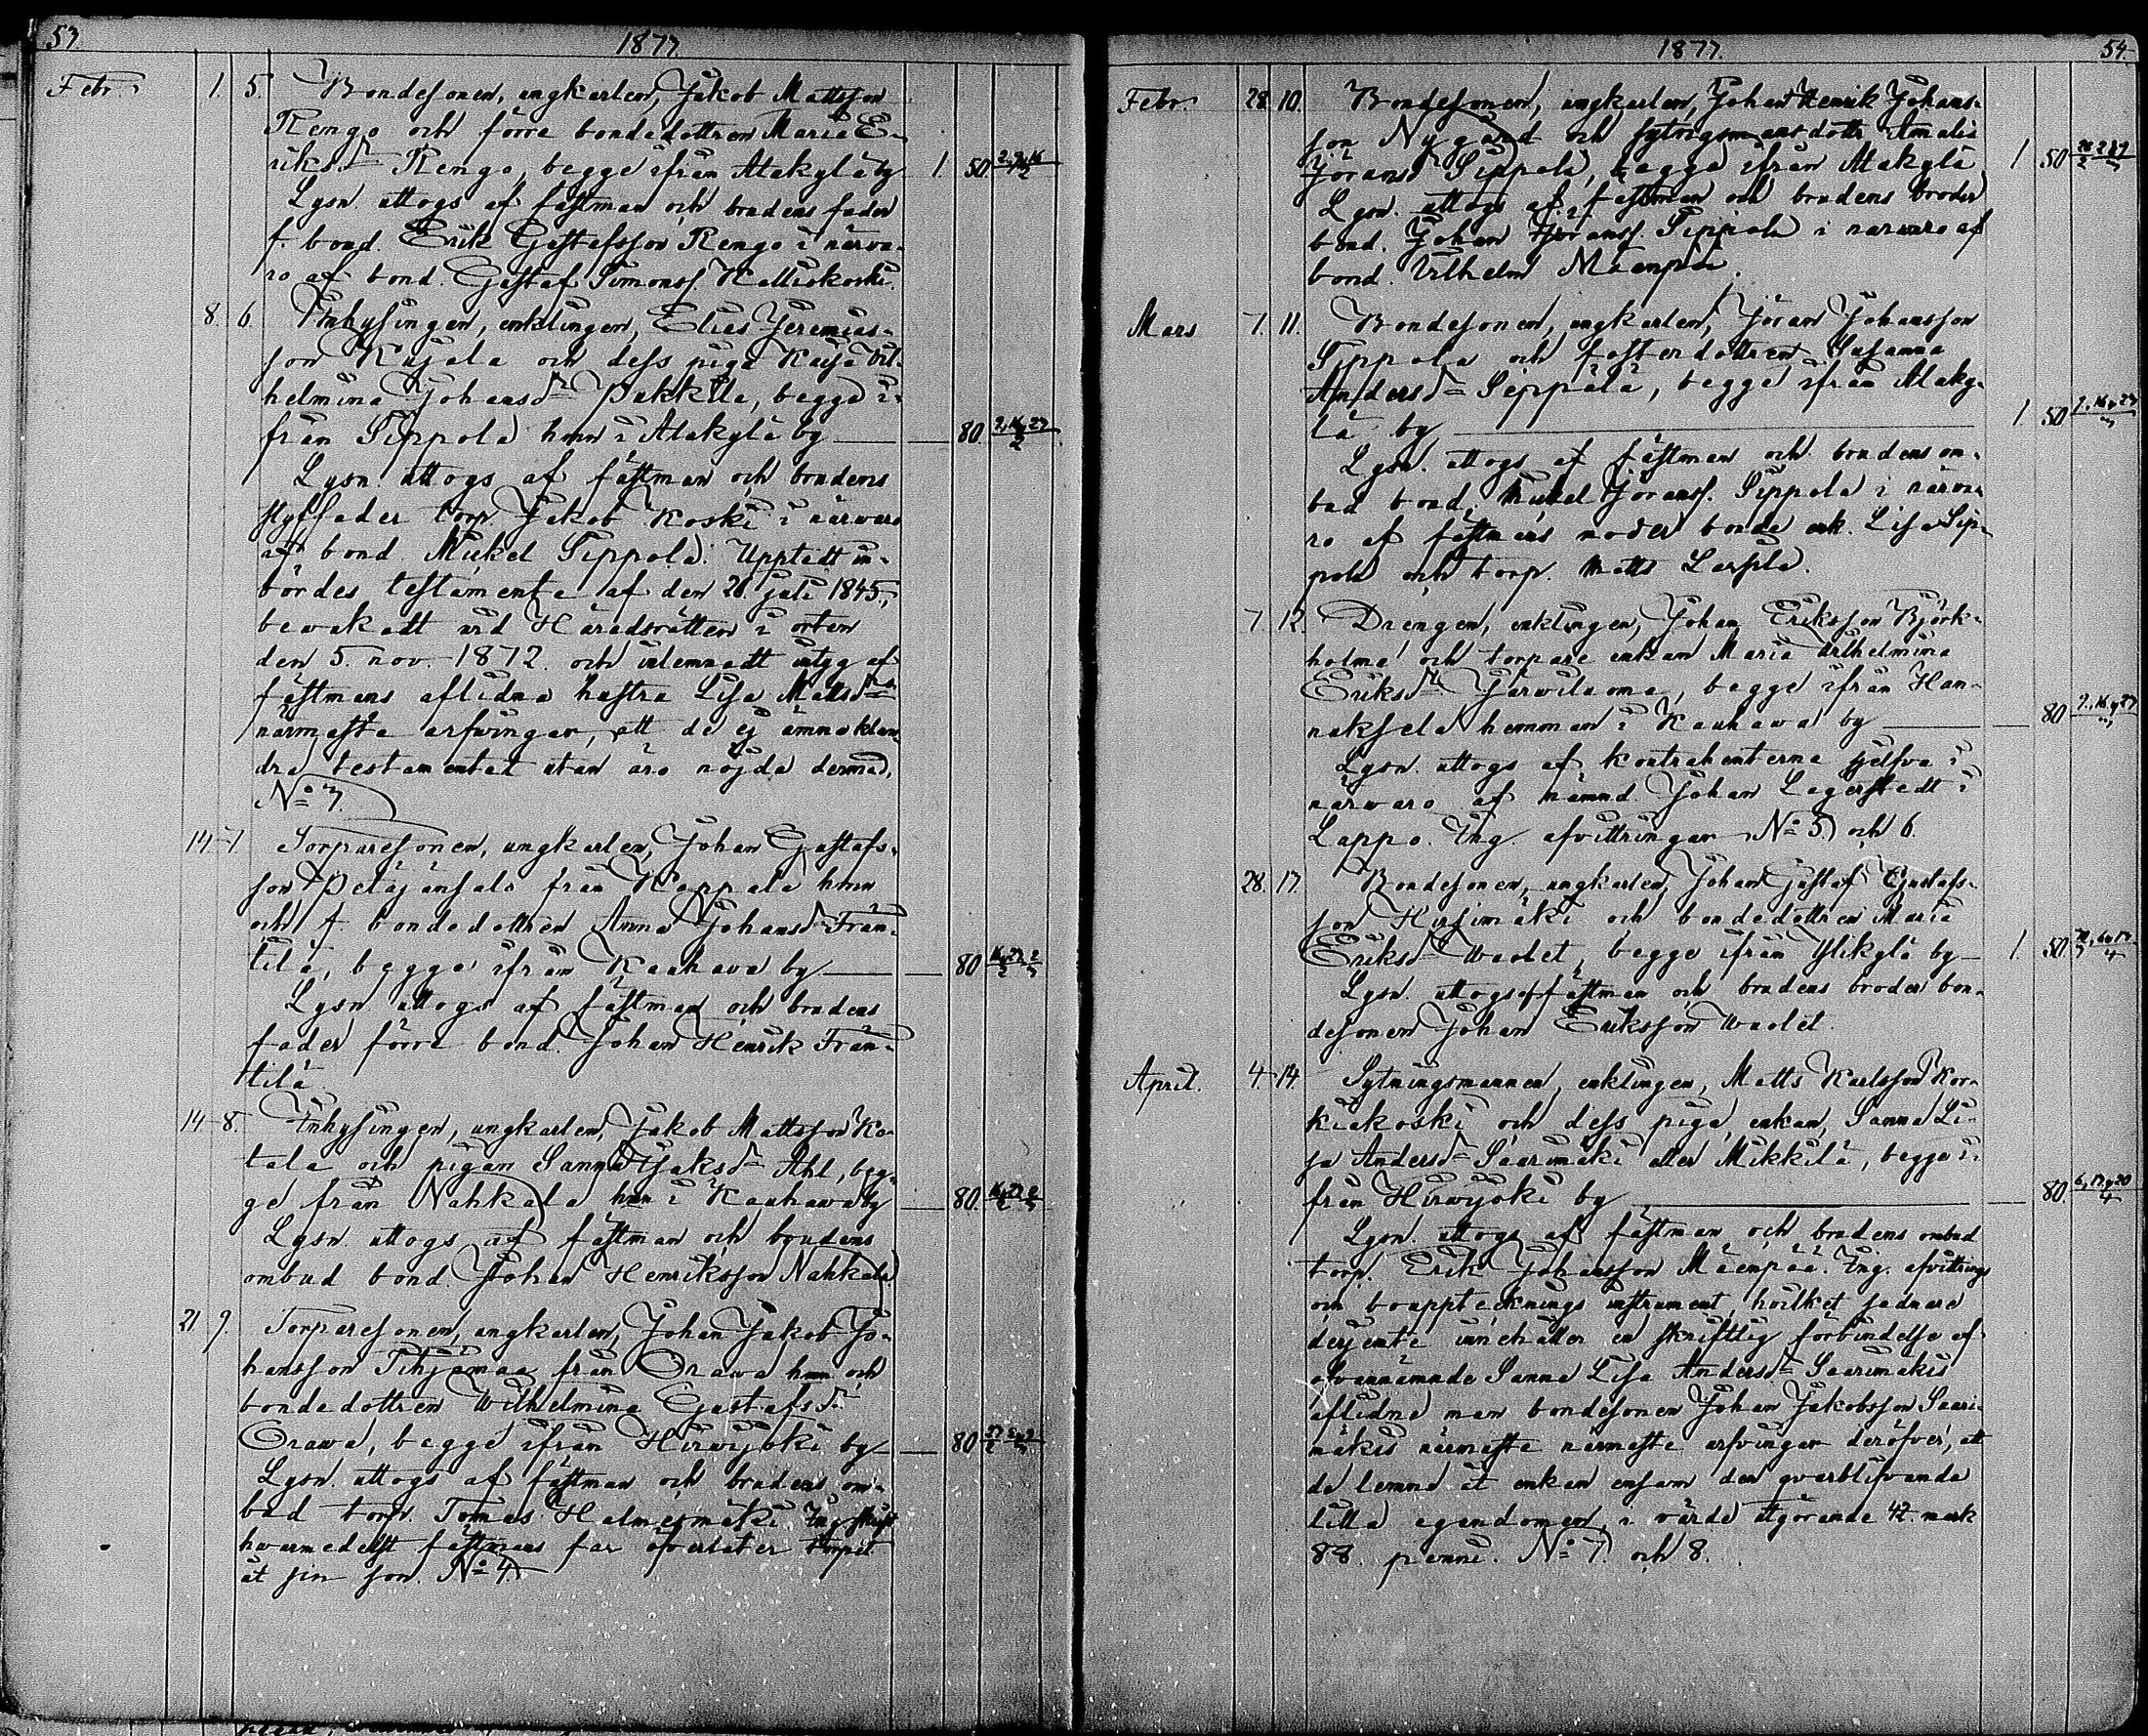 53.
1877.
Febr. 1. 5. Bondesonen, ungkarlen, Jakob Mattsson
Rengo och förre bondedottren Maria E-
riksdr Rengo, begge ifrån Alakylä by 1. 50
Lysn. uttogs af fästman och brudens fader
f. bond. Erik Gustafsson Rengo i närva-
ro af bond. Gustaf Simonss. Kalliokoski.
8. 6. Inhysingen, enklingen, Elias Jeremias-
son Kujala och dess piga Kajsa Vil-
helmina Johansdr Pukkila, begge i-
från Sippola hmn i Alakylä by — 80 2, 16, 23/2
Lysn. uttogs af fästman och brudens
styffader torp. Jakob Koski i närvaro
af bond. Mickel Sippola. Upptedt in-
bördes testamente af den 26 juli 1845,
bevakadt vid Häradsrätten i orten
den 5. nov. 1872. och inlemnadt intyg af
fästmans aflidna hustru Lisa Mattsdrs
närmaste arfvingar, att de ej ämna klan-
dra testamentet utan äro nöjda dermed,
No 3.
14 7 Torparesonen, ungkarlen, Johan Gustafs-
son från Koppala hmn
och f. bondedottren Anna Johansdr Fran-
tila, begge ifrån Kauhava by — 80
Lysn. uttogs af fästman och brudens
fader förre bond. Johan Henrik Fran-
tila.
14 8. Inhysingen, ungkarlen, Jakob Mattsson Ko-
tala och pigan Sanna Jaksdr Ahl, beg-
ge från Nahkala hmn i Kauhava by — 80.
Lysn. uttogs af fästman och brudens
ombud bond Johan Henriksson Nahkala
21 9. Torparesonen, ungkarlen, Johan Jakob Jo-
hansson Tihjämaa från Orawa hmn och
bondedottren Wilhelmina Gustafsdr
Orawa, begge ifrån Hirvijoki by — 80
Lysn. uttogs af fästman och brudens om-
bud torp. Tomas Halmesmäki. Ing. skrift
hvarmedelst fästmans far öfverlåter torpet
åt sin son. No 4.
1877.
54.
Febr. 28. 10. Bondesonen, ungkarlen, Johan Henrik Johans-
son Nygård och sytningsmansdottr Amalia
Jöransdr Sippola, begge ifrån Alakylä 1 50
Lysn. uttogs af fästman och brudens broder
bond. Johan Jöranss. Sippola i närvaro af
bond. Vilhelm Mäenpää.
Mars 7. 11. Bondesonen, ungkarlen, Jöran Johansson
Sippola och fosterdottren Susanna
Andersdr Seppälä, begge ifrån Alaky-
lä by — 1 50
Lysn. uttogs af fästman och brudens om-
bud bond. Mickel Jöranss. Sippola i närva-
ro af fästmans moder bonde enk. Lisa Sip-
pola och torp. Matts
7 12. Drengen, enklingen, Johan Eriksson Björk-
holma och torpare enkan Maria Vilhelmina
Eriksdr Järwiluoma, begge ifrån Han-
nuksela hemman i Kauhawa by — 80
Lysn. uttogs af kontrahenterna sjelfva i
närwaro af nämnd. Johan Lagerstedt i
Lappo. Ing. afvittringar No 5. och 6.
28. 13 Bondesonen, ungkarlen, Johan Gustaf Gustafs-
son Hirsimäki och bondedottren Maria
Eriksdr Wuolet, begge ifrån Ylikylä by — 1. 50.
Lysn. uttogs af fästman och brudens broder bon-
desonen Johan Eriksson Wuolet.
April. 4 14 Sytningsmannen, enklingen, Matts Karlsson Kor-
kiakoski och dess piga, enkan, Sanna Li-
sa Andersdr Saarimäki eller Mikkilä, begge i-
från Hirwijoki by — 80. 6, 13, 20/4
Lysn. uttogs af fästman och brudens ombud
torp. Erik Johansson Mäenpää. Ing. afvittrings
och bouppteckningsinstrument, hvilket sednare
derjemte innehåller en skriftlig förbindelse af
ofvannämnde Sanna Lisa Andersdr Saarimäkis
aflidne man bondesonen Johan Jakobsson Saari-
mäkis närmaste närmaste arfvingar deröfver, att
de lemna åt enkan ensam den qvarblifvande
lilla egendomen, i värde utgörande 42. mark
88. penni. No 7. och 8.